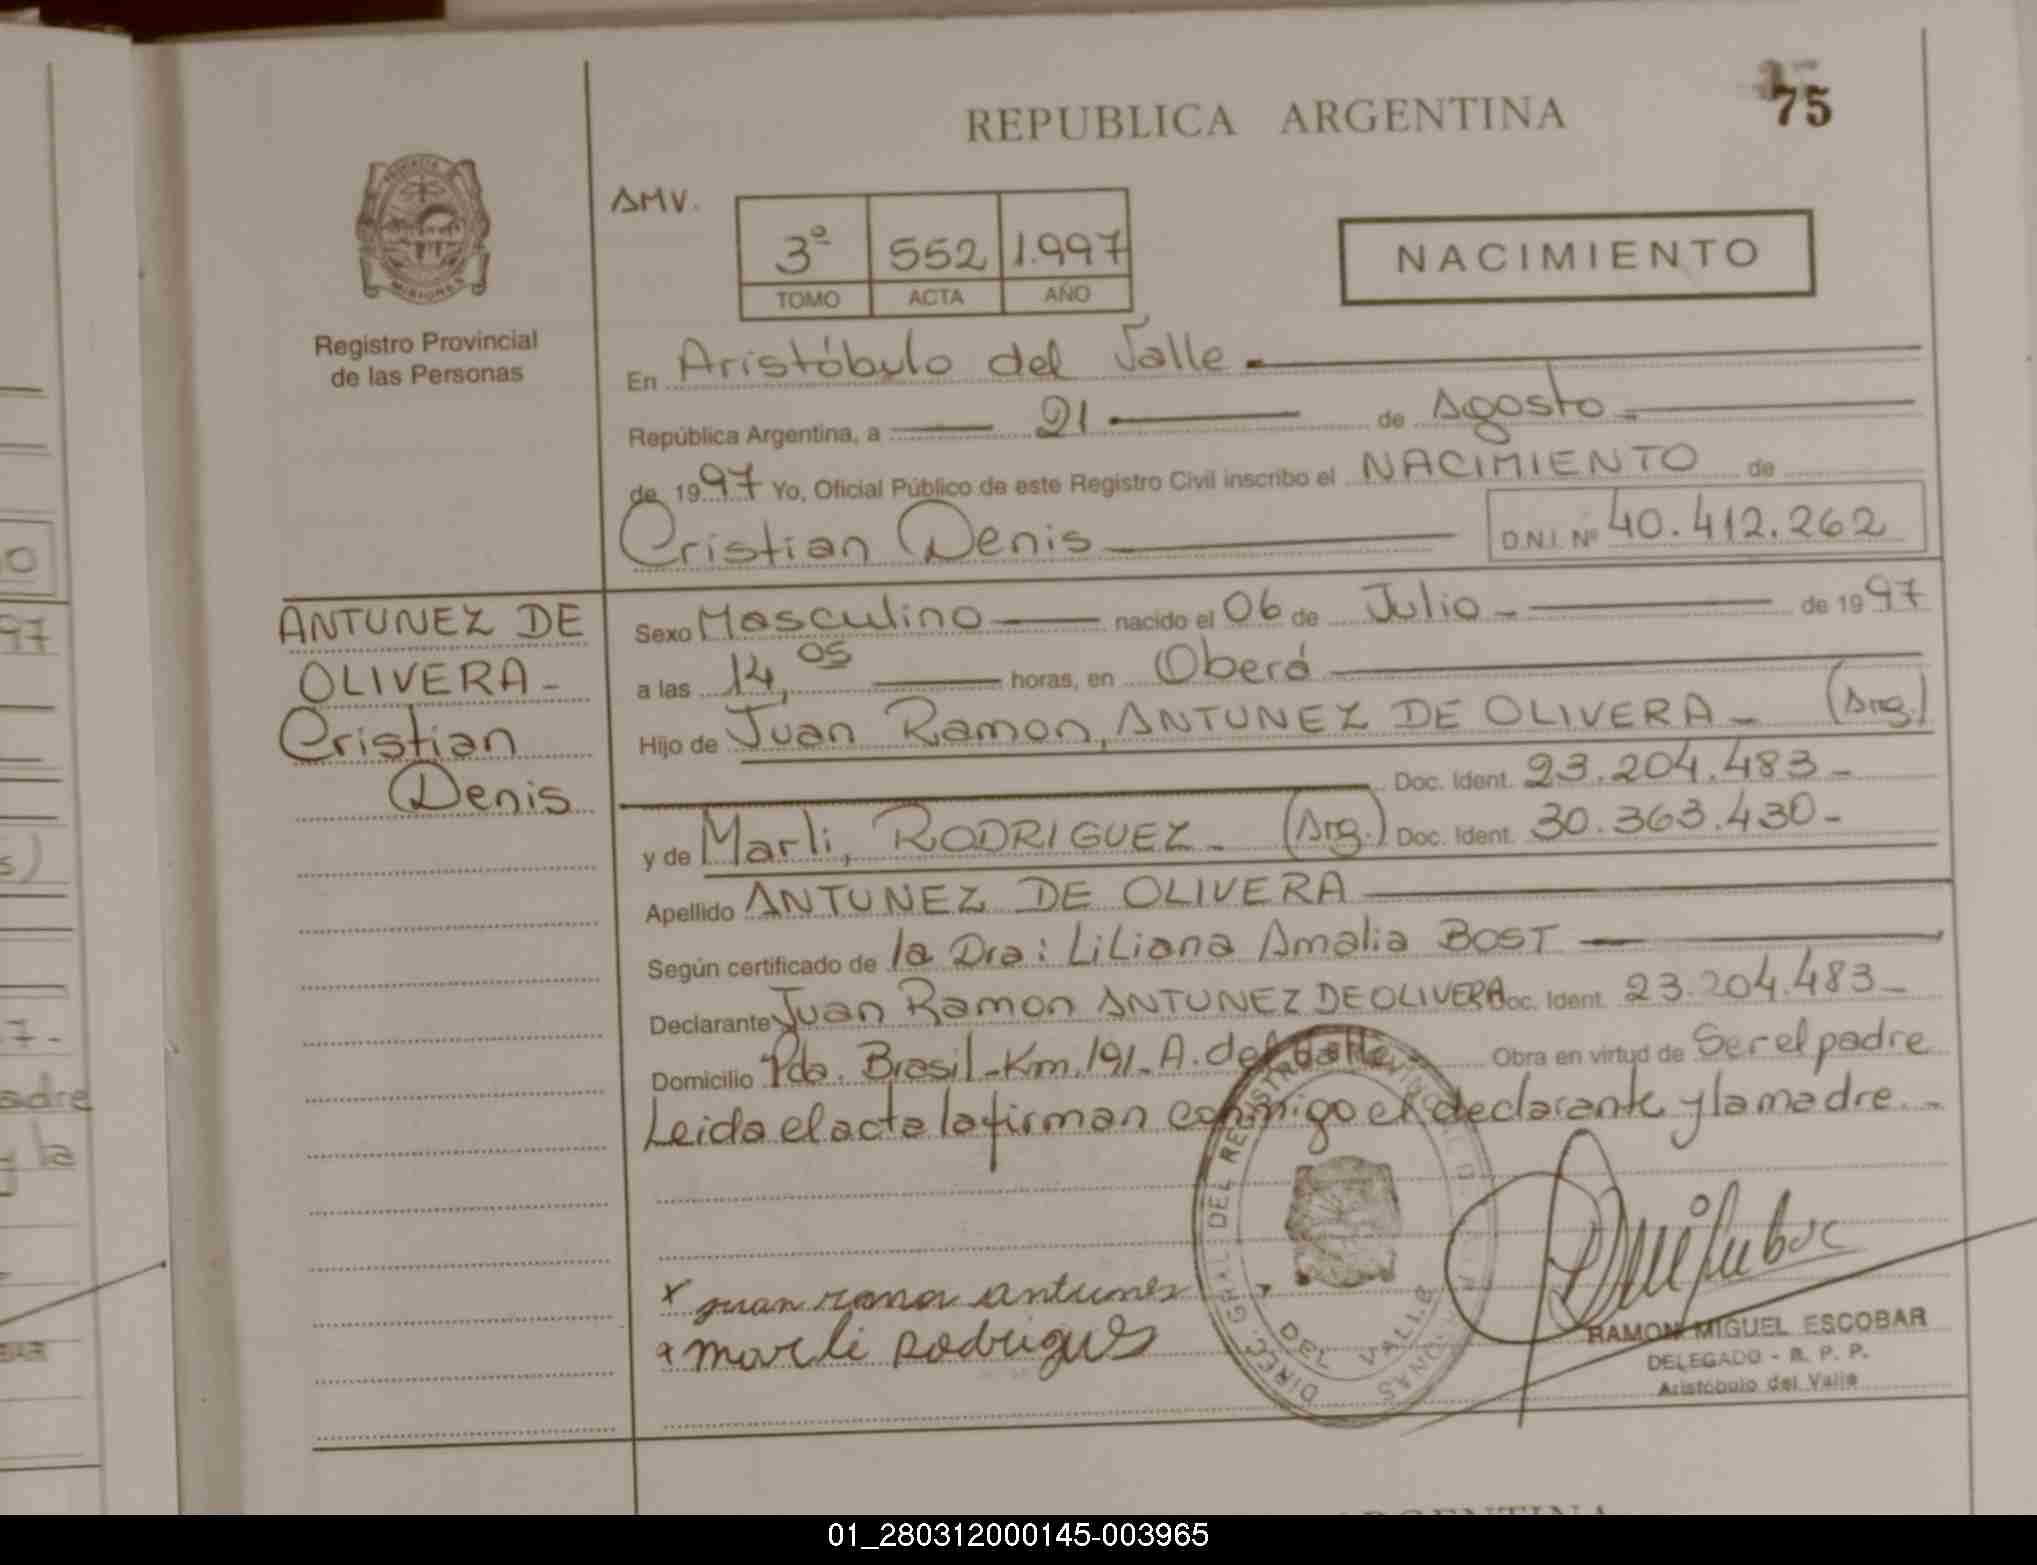 75
REPUBLICA ARGENTINA
AMV.
3º 552 1.997
TOMO ACTA AÑO
NACIMIENTO
PROVINCIA
MISIONES
Registro Provincial
de las Personas
En Aristóbulo del Valle
República Argentina, a 21 de Agosto
de 1997 Yo, Oficial Público de este Registro Civil inscribo el NACIMIENTO de
Cristian Denis D.N.I. Nº 40.412.262
ANTUNEZ DE
OLIVERA -
Cristian
Denis
Sexo Masculino nacido el 06 de Julio - de 1997
a las 14,05 horas, en Oberá
Hijo de Juan Ramon, ANTUNEZ DE OLIVERA - (Arg.)
Doc. Ident. 23.204.483 -
y de Marli, RODRIGUEZ - (Arg.) Doc. Ident. 30.363.430 -
Apellido ANTUNEZ DE OLIVERA
Según certificado de la Dra: Liliana Amalia BOST
Declarante Juan Ramon ANTUNEZ DE OLIVERA Doc. Ident. 23.204.483 -
Domicilio Pdo. Brasil - Km. 191 - A. del Valle - Obra en virtud de Ser el padre
Leida el acta la firman conmigo el declarante y la madre. -
x juan ramon antunes
x marli Rodrigues
DIREC. GRAL. DEL REGISTRO PROVINCIAL DE LAS PERSONAS
DEL VALLE
RAMON MIGUEL ESCOBAR
DELEGADO - R. P. P.
Aristóbulo del Valle
97
7 -
adre
y la
ARGENTINA
01_280312000145-003965